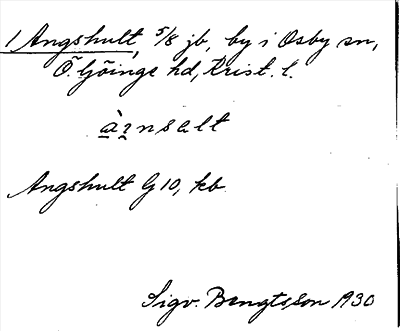 1 Angshult, 5/8 jb, by i Osby sn,
Ö. Göinge hd, Krist. l.
Angshult G 10, kb.
Sigv. Bengtsson 1930